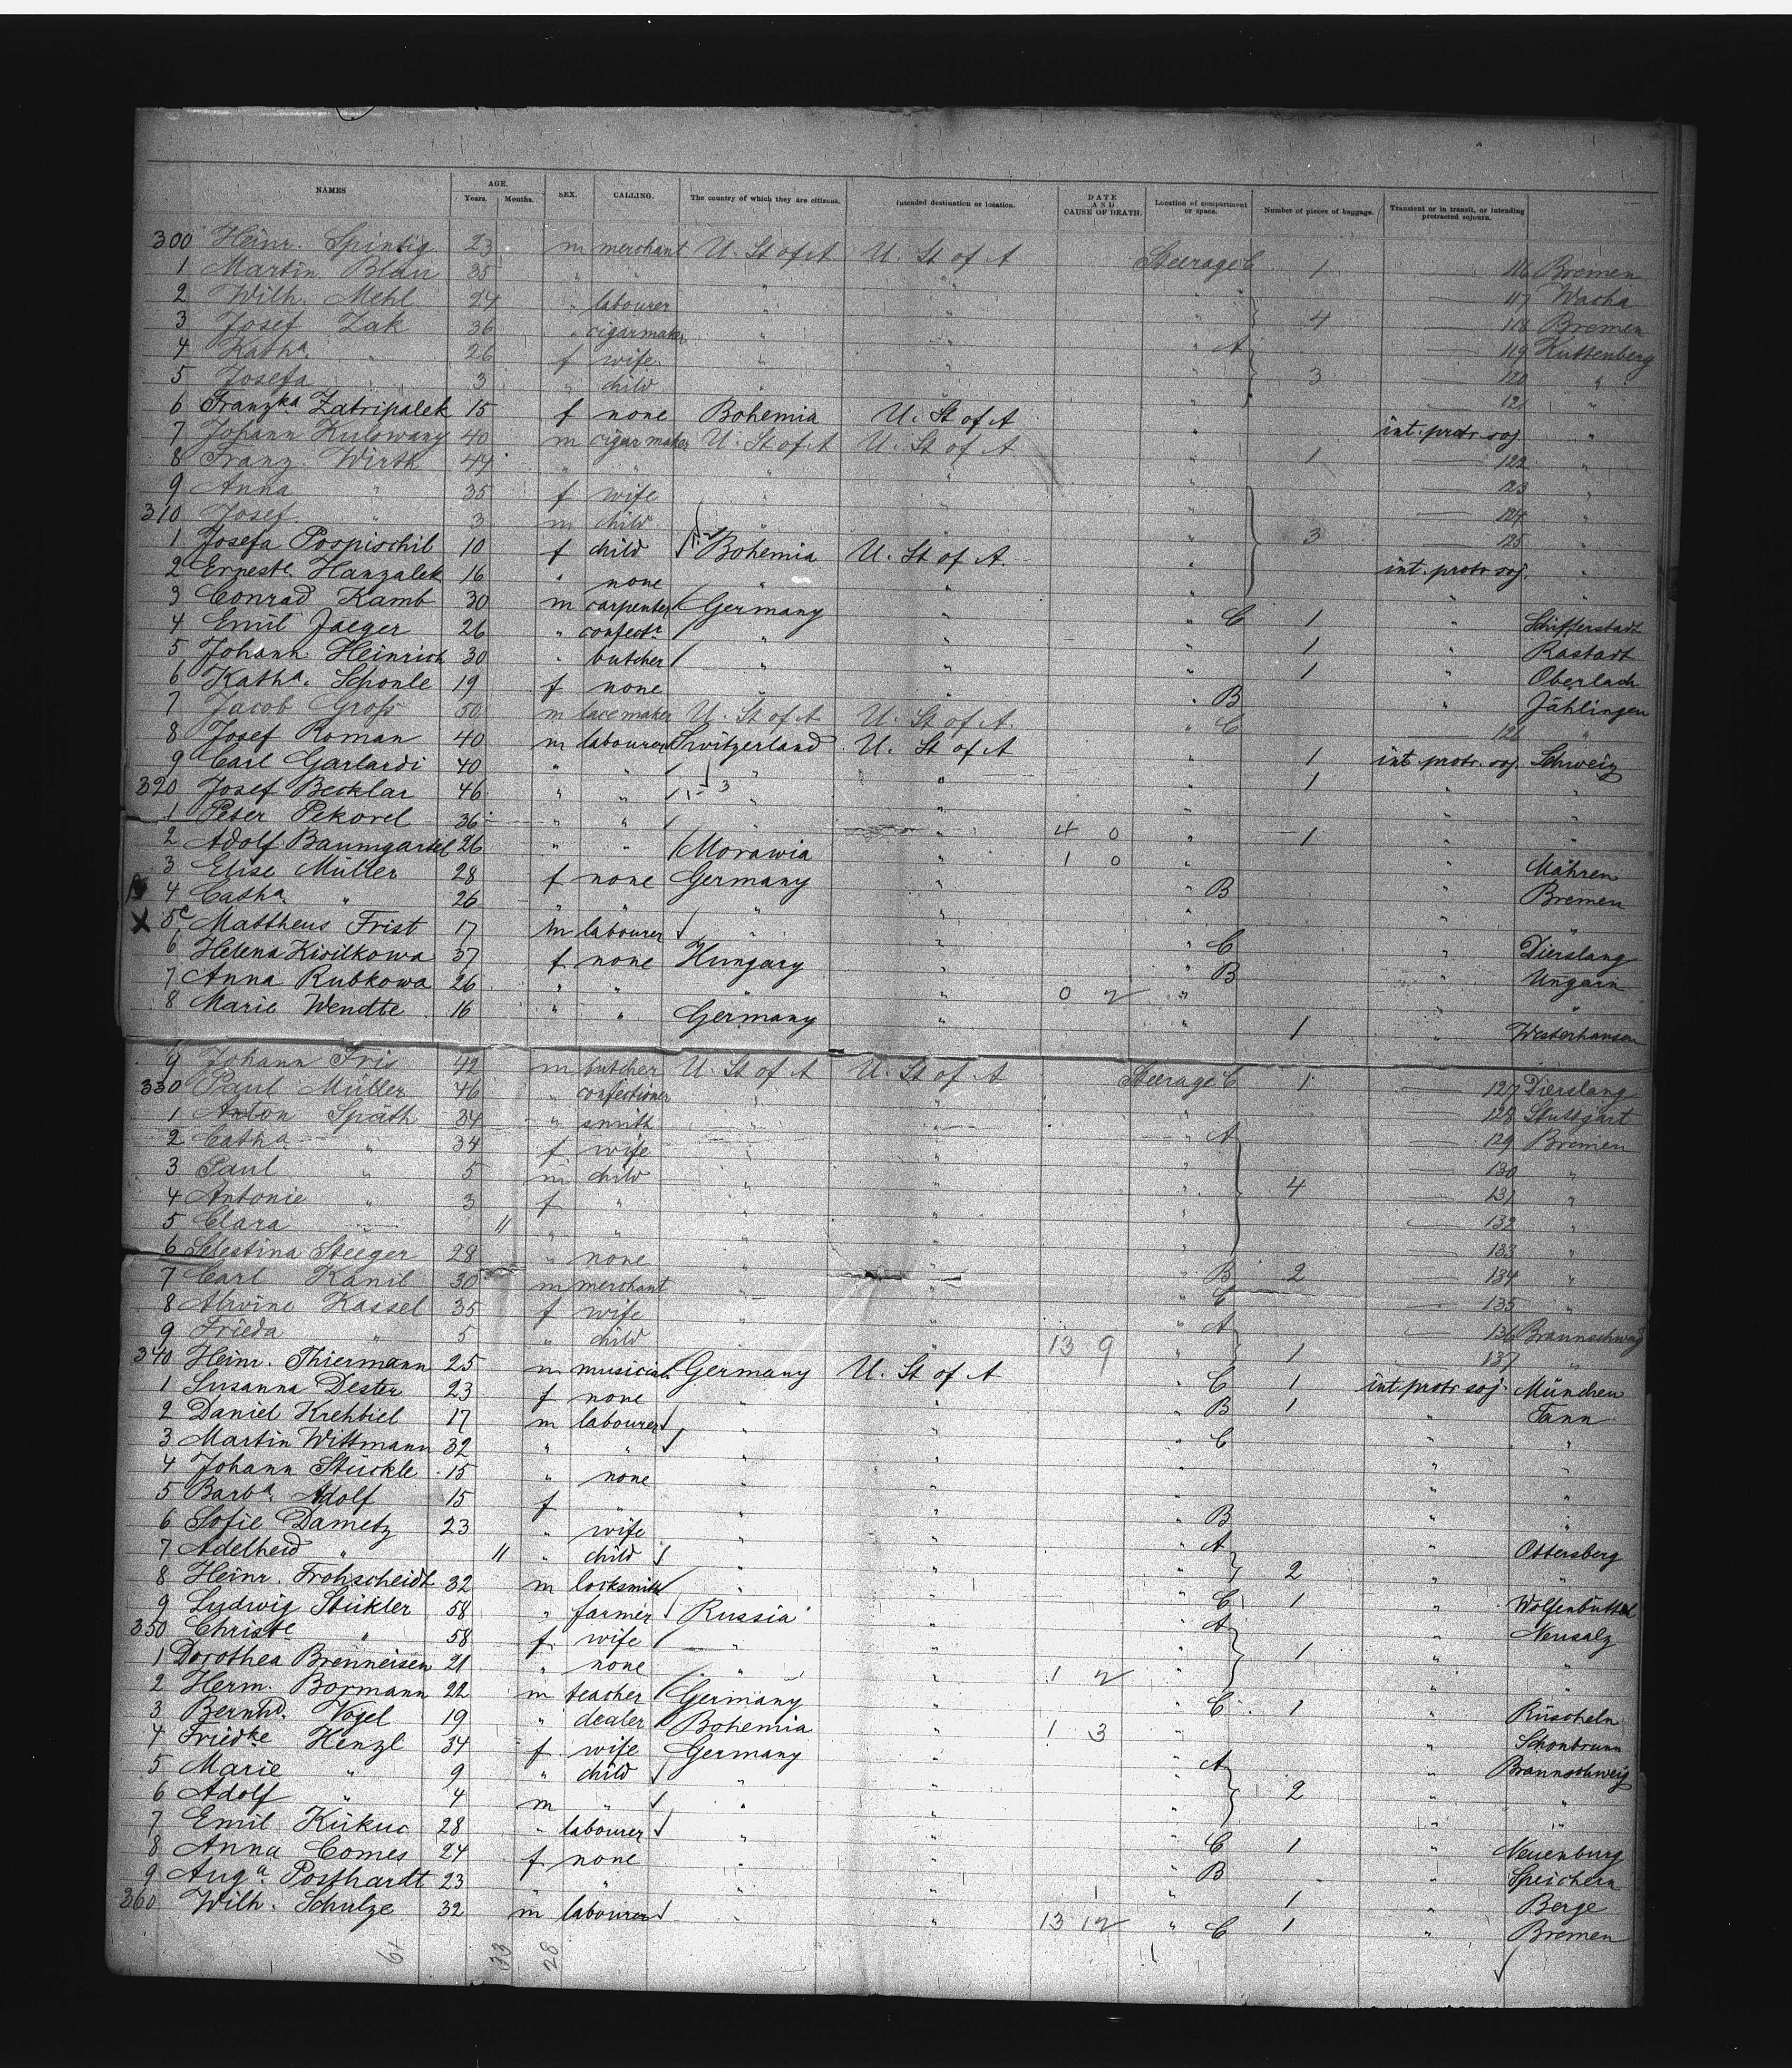 NAMES AGE. Years. Months. SEX. CALLING. The country of which they are citizens. Intended destination or location. DATE AND CAUSE OF DEATH. Location of compartment or space. Number of pieces of baggage. Transient or in transit, or intending protracted sojourn.
300 Heinr. Spintig 23 m merchant U. St of A U. St of A Steerage C 1 116 Bremen
1 Martin Blau 35 " " " " " 117 Wacha
2 Wilh. Mehl 24 " labourer " " " 4 118 Bremen
3 Josef Zak 36 " cigarmaker " " " A 119 Kuttenberg
4 Katha. " 26 f wife " " " 3 120 "
5 Josefa " 3 " child " " " 121 "
6 Franzka Zatripalek 15 f none Bohemia U. St of A " int. protr. soj. "
7 Johann Kulowany 40 m cigar maker U. St of A U. St of A " 1 122 "
8 Franz Wirth 44 " " " " " 123 "
9 Anna " 35 f wife " " " 124 "
310 Josef " 3 m child " " " 3 125 "
1 Josefa Pospischil 10 f child Bohemia U. St of A. " int. protr soj. "
2 Erneste. Hanzalek 16 " none " " " "
3 Conrad Kamb 30 m carpenter Germany " " C 1 " Schifferstadt
4 Emil Jaeger 26 " confectr " " " 1 " Rastatt
5 Johann Heinrich 30 " butcher " " " 1 " Oberlach
6 Katha. Schonle 19 f none " " " B " Jählingen
7 Jacob Groß 50 m lacemaker U. St of A U. St of A " C 126 "
8 Josef Roman 40 m labourer Switzerland U. St of A " 1 int. protr. soj. Schweiz
9 Carl Garlardi 40 " " " " " 1 " "
320 Josef Becklar 46 " " " " " " "
1 Peter Pekovel 36 " " " " 4 0 " 1 " "
2 Adolf Baumgartel 26 " " Morawia " 1 0 " " Mähren
3 Elise Müller 28 f none Germany " " B " Bremen
4 Catha. " 26 " " " " " " "
X 5 Mattheus Frist 17 m labourer " " " C " Dierslang
6 Helena Kisilkowa 37 f none Hungary " " B " Ungarn
7 Anna Rubkowa 26 " " " " 0 2 " " "
8 Marie Wendte 16 " " Germany " " 1 " Westerhausen
9 Johann Fris 42 m butcher U. St of A U. St of A Steerage C 1 127 Dierslang
330 Paul Müller 46 " confectioner " " " 128 Stuttgart
1 Anton Späth 34 " smith " " " A 129 Bremen
2 Catha " 34 f wife " " " 130 "
3 Paul " 5 m child " " " 4 131 "
4 Antonie " 3 f " " " " 132 "
5 Clara " 11 " " " " " 133 "
6 Selestina Steeger 28 " none " " " B 2 134 "
7 Carl Kanil 30 m merchant " " " C 135 "
8 Alwine Kassel 35 f wife " " " A 136 Braunschweig
9 Frieda " 5 " child " " 13 9 " 1 137 "
340 Heinr. Thiermann 25 m musician Germany U. St of A " C 1 int protr soj. München
1 Susanna Dester 23 f none " " " B 1 " Tann
2 Daniel Krehbiel 17 m labourer " " " C " "
3 Martin Wittmann 32 " " " " " " "
4 Johann Stückle 15 " none " " " " "
5 Barba. Adolf 15 f " " " " B " "
6 Sofie Dametz 23 " wife " " " A " Ottersberg
7 Adelheid " 11 " child " " " 2 " "
8 Heinr. Frohscheidt 32 m locksmith " " " C 1 " Wolfenbüttel
9 Ludwig Stükler 58 " farmer Russia " " A " Neusalz
350 Christe " 58 f wife " " " 1 " "
1 Dorothea Brenneisen 21 " none " " 1 2 " " "
2 Herm. Bormann 22 m teacher Germany " " C 1 " Rüscheln
3 Bernhd. Vogel 19 " dealer Bohemia " 1 3 " " Schonbrunn
4 Friedke Henzl 34 f wife Germany " " A " Braunschweig
5 Marie " 9 " child " " " 2 " "
6 Adolf " 4 m " " " " " "
7 Emil Kukuc 28 " labourer " " " C 1 " Neuenburg
8 Anna Comes 24 f none " " " B " Speichern
9 Auga Posthardt 23 " " " " " 1 " Berge
360 Wilh. Schulze 32 m labourer " " 13 12 " C 1 " Bremen
61 33 28